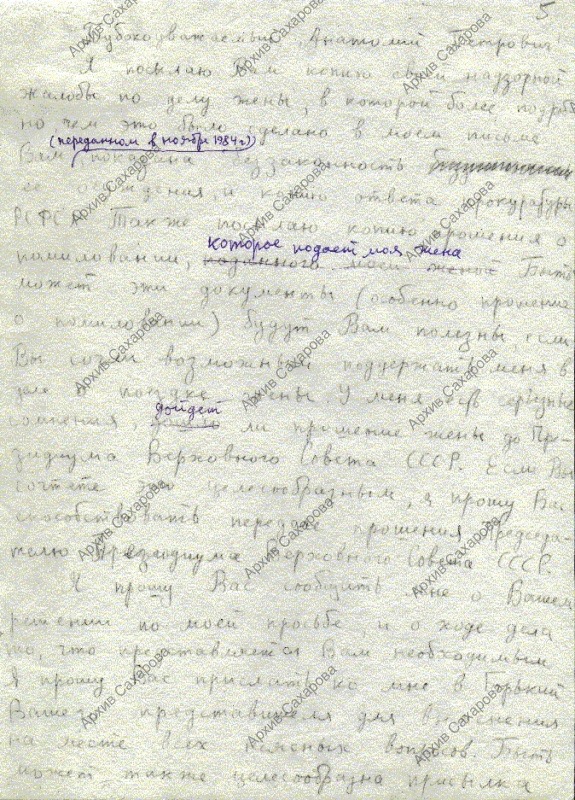 5
Глубокоуважаемый Анатолий Петрович!
Я посылаю Вам копию своей надзорной
жалобы по делу жены, в которой более подроб-
но чем это было сделано в моем письме
(переданном в ноябре 1984 г.)
Вам показана беззаконность
ее осуждения и копию ответа прокуратуры
РСФСР. Также посылаю копию прошения о
которое подает моя жена
помиловании, поданного моей женой Быть
может эти документы (особенно прошение
о помиловании) будут Вам полезны, если
Вы сочли возможным поддержать меня в
деле о поездке жены. У меня есть серьезные
дойдет
сомнения, ли прошение жены до Пре-
зидиума Верховного Совета СССР. Если Вы
сочтете это целесообразным, я прошу Вас
способствовать передаче прошения Председа-
телю Президиума Верховного Совета СССР.
Я прошу Вас сообщить мне о Вашем
решении по моей просьбе, и о ходе дела
то, что представляется Вам необходимым
Я прошу Вас прислать ко мне в Горький
Вашего представителя для выяснения
на месте всех неясных вопросов. Быть
может, также целесообразна присылка
Архив Сахарова
Архив Сахарова
Архив Сахарова
Архив Сахарова
Архив Сахарова
Архив Сахарова
Архив Сахарова
Архив Сахарова
Архив Сахарова
Архив Сахарова